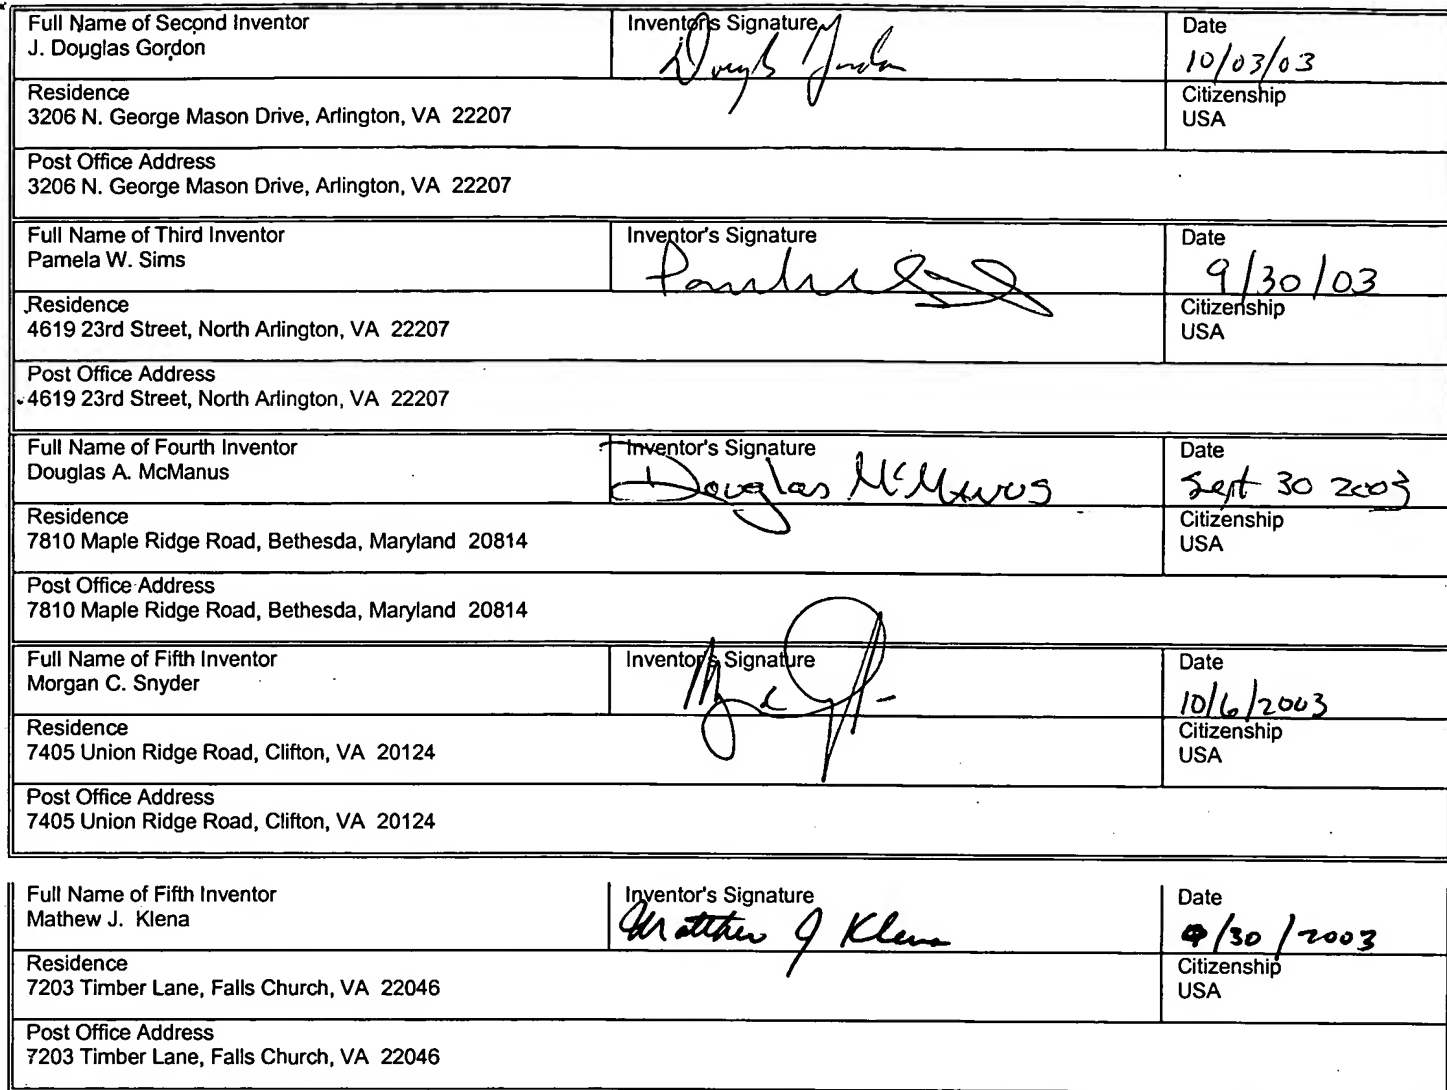 Full Name of Second Inventor
J. Douglas Gordon
Inventor's Signature
Date
10/03/03
Residence
3206 N. George Mason Drive, Arlington, VA 22207
Citizenship
USA
Post Office Address
3206 N. George Mason Drive, Arlington, VA 22207
Full Name of Third Inventor
Pamela W. Sims
Inventor's Signature
Date
9/30/03
Residence
4619 23rd Street, North Arlington, VA 22207
Citizenship
USA
Post Office Address
4619 23rd Street, North Arlington, VA 22207
Full Name of Fourth Inventor
Douglas A. McManus
Inventor's Signature
Douglas McManus
Date
Sept 30 2003
Residence
7810 Maple Ridge Road, Bethesda, Maryland 20814
Citizenship
USA
Post Office Address
7810 Maple Ridge Road, Bethesda, Maryland 20814
Full Name of Fifth Inventor
Morgan C. Snyder
Inventor's Signature
Date
10/6/2003
Residence
7405 Union Ridge Road, Clifton, VA 20124
Citizenship
USA
Post Office Address
7405 Union Ridge Road, Clifton, VA 20124
Full Name of Fifth Inventor
Mathew J. Klena
Inventor's Signature
Matthew J Klena
Date
9/30/2003
Residence
7203 Timber Lane, Falls Church, VA 22046
Citizenship
USA
Post Office Address
7203 Timber Lane, Falls Church, VA 22046